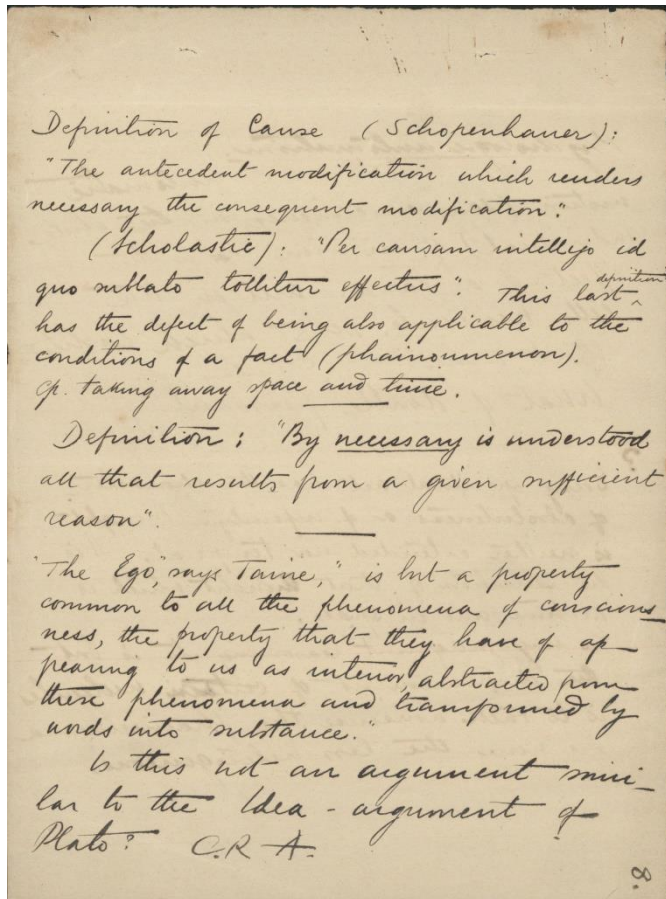 Definition of Cause (Schopenhauer):
"The antecedent modification which renders
necessary the consequent modification".
(Scholastic): "Per causam intelligo id
quo sublato tollitur effectus". This last definition
has the defect of being also applicable to the
conditions of a fact (phainoumenon).
cp. taking away space and time.
Definition: "By necessary is understood
all that results from a given sufficient
reason".
"The Ego", says Taine, "is but a property
common to all the phenomena of conscious-
ness, the property that they have of ap-
pearing to us as interior, abstracted from
these phenomena and transformed by
words into substance."
Is this not an argument simi-
lar to the Idea-argument of
Plato? C.R A.
8.